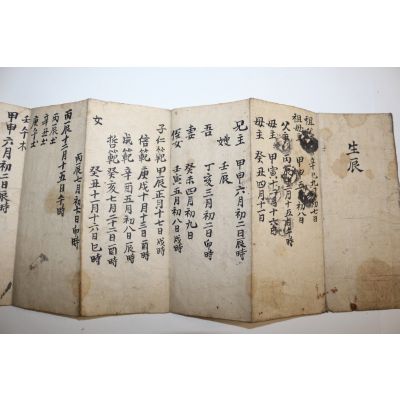 生辰
祖
祖母 甲申
父主 丙 月十五日 時
母主 甲寅十一月十六日
母主 癸丑四月十一日
兄主 甲申六月初二日辰時
嫂 壬辰
吾 丁亥三月初二日卯時
妻 癸未四月初九日
侄女 壬寅五月初八日戌時
子仁範 甲辰正月十七日戌時
信範 庚戌十月十三日酉時
成範 辛酉五月初八日辰時
哲範 癸亥七月二十二日酉時
女 癸丑十二月十六日巳時
丙辰七月初七日卯時
丙辰十二月十五日午時
丙辰土
辛丑土
庚午土
壬午木
甲申六月初二日辰時